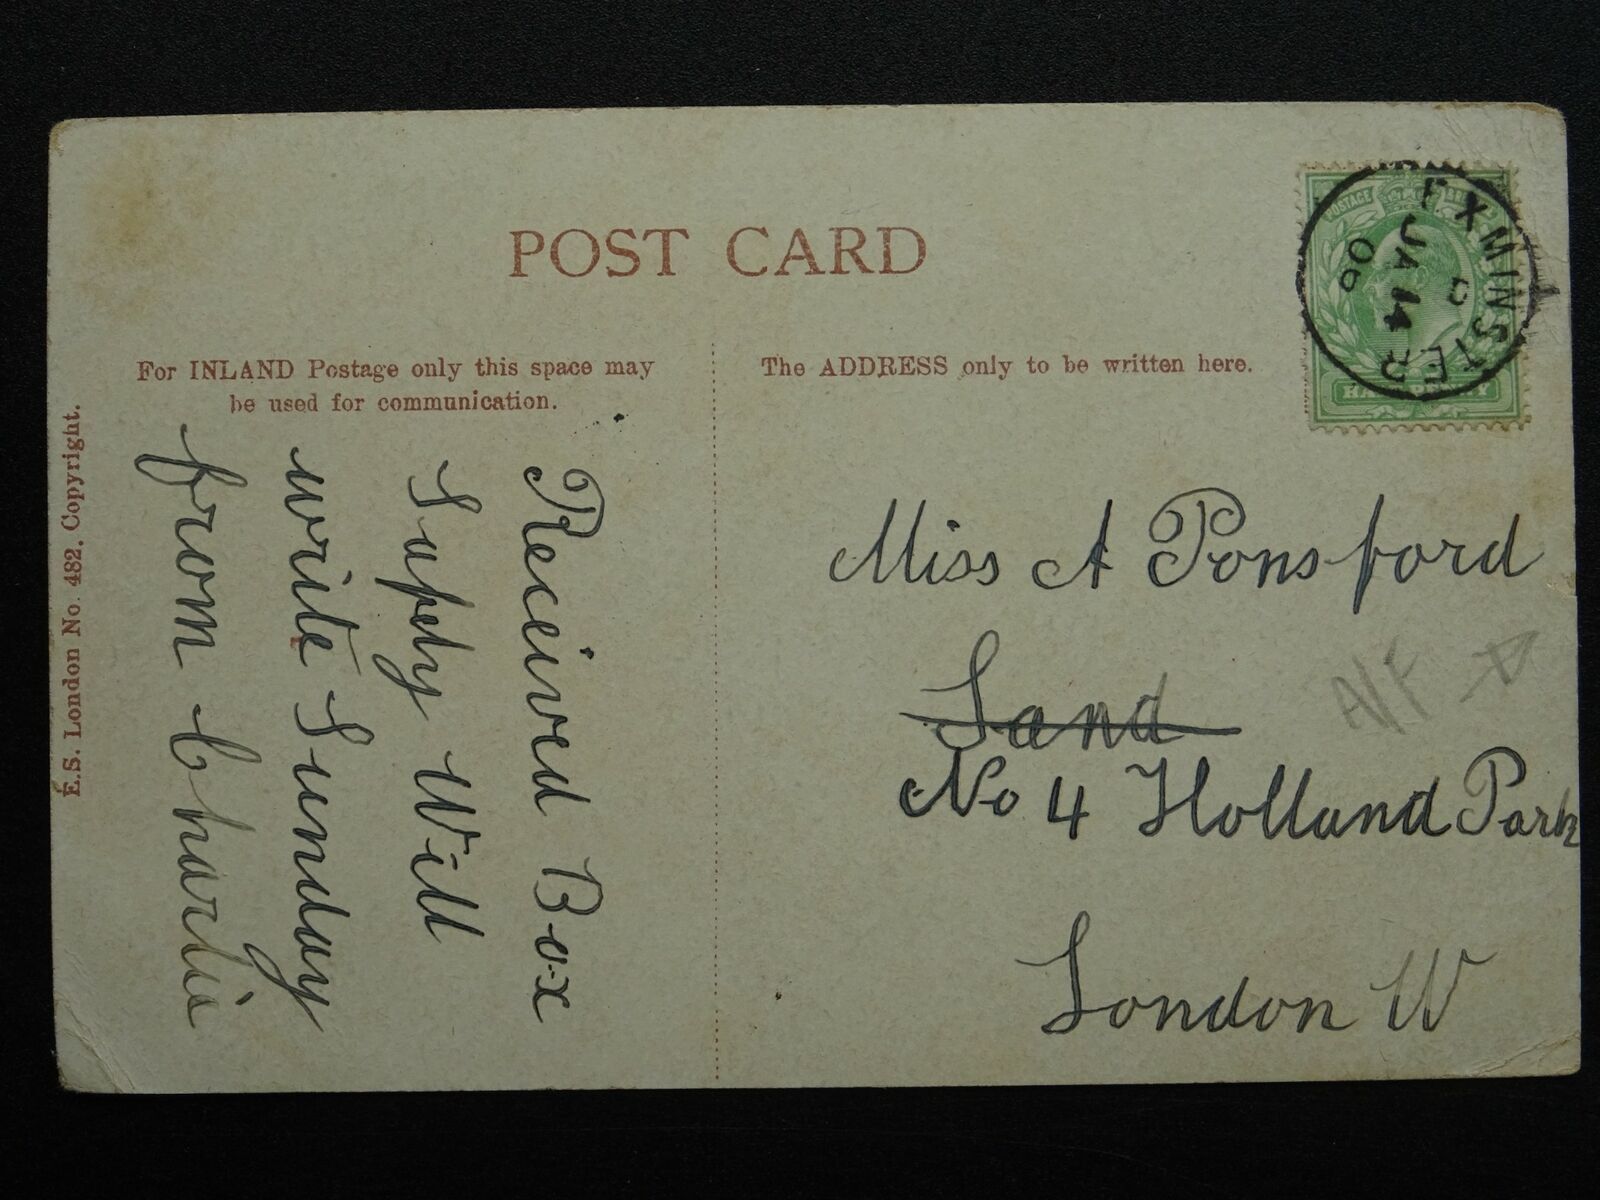 POST CARD
For INLAND Postage only this space may
be used for communication.
The ADDRESS only to be written here.
E.S. London No. 482. Copyright.
EXMINSTER
JA 14
06
POSTAGE
Received Box
Safety Will
write Sunday
from Charlie
Miss A Ponsford
Sand
No 4 Holland Park
London W
A/F